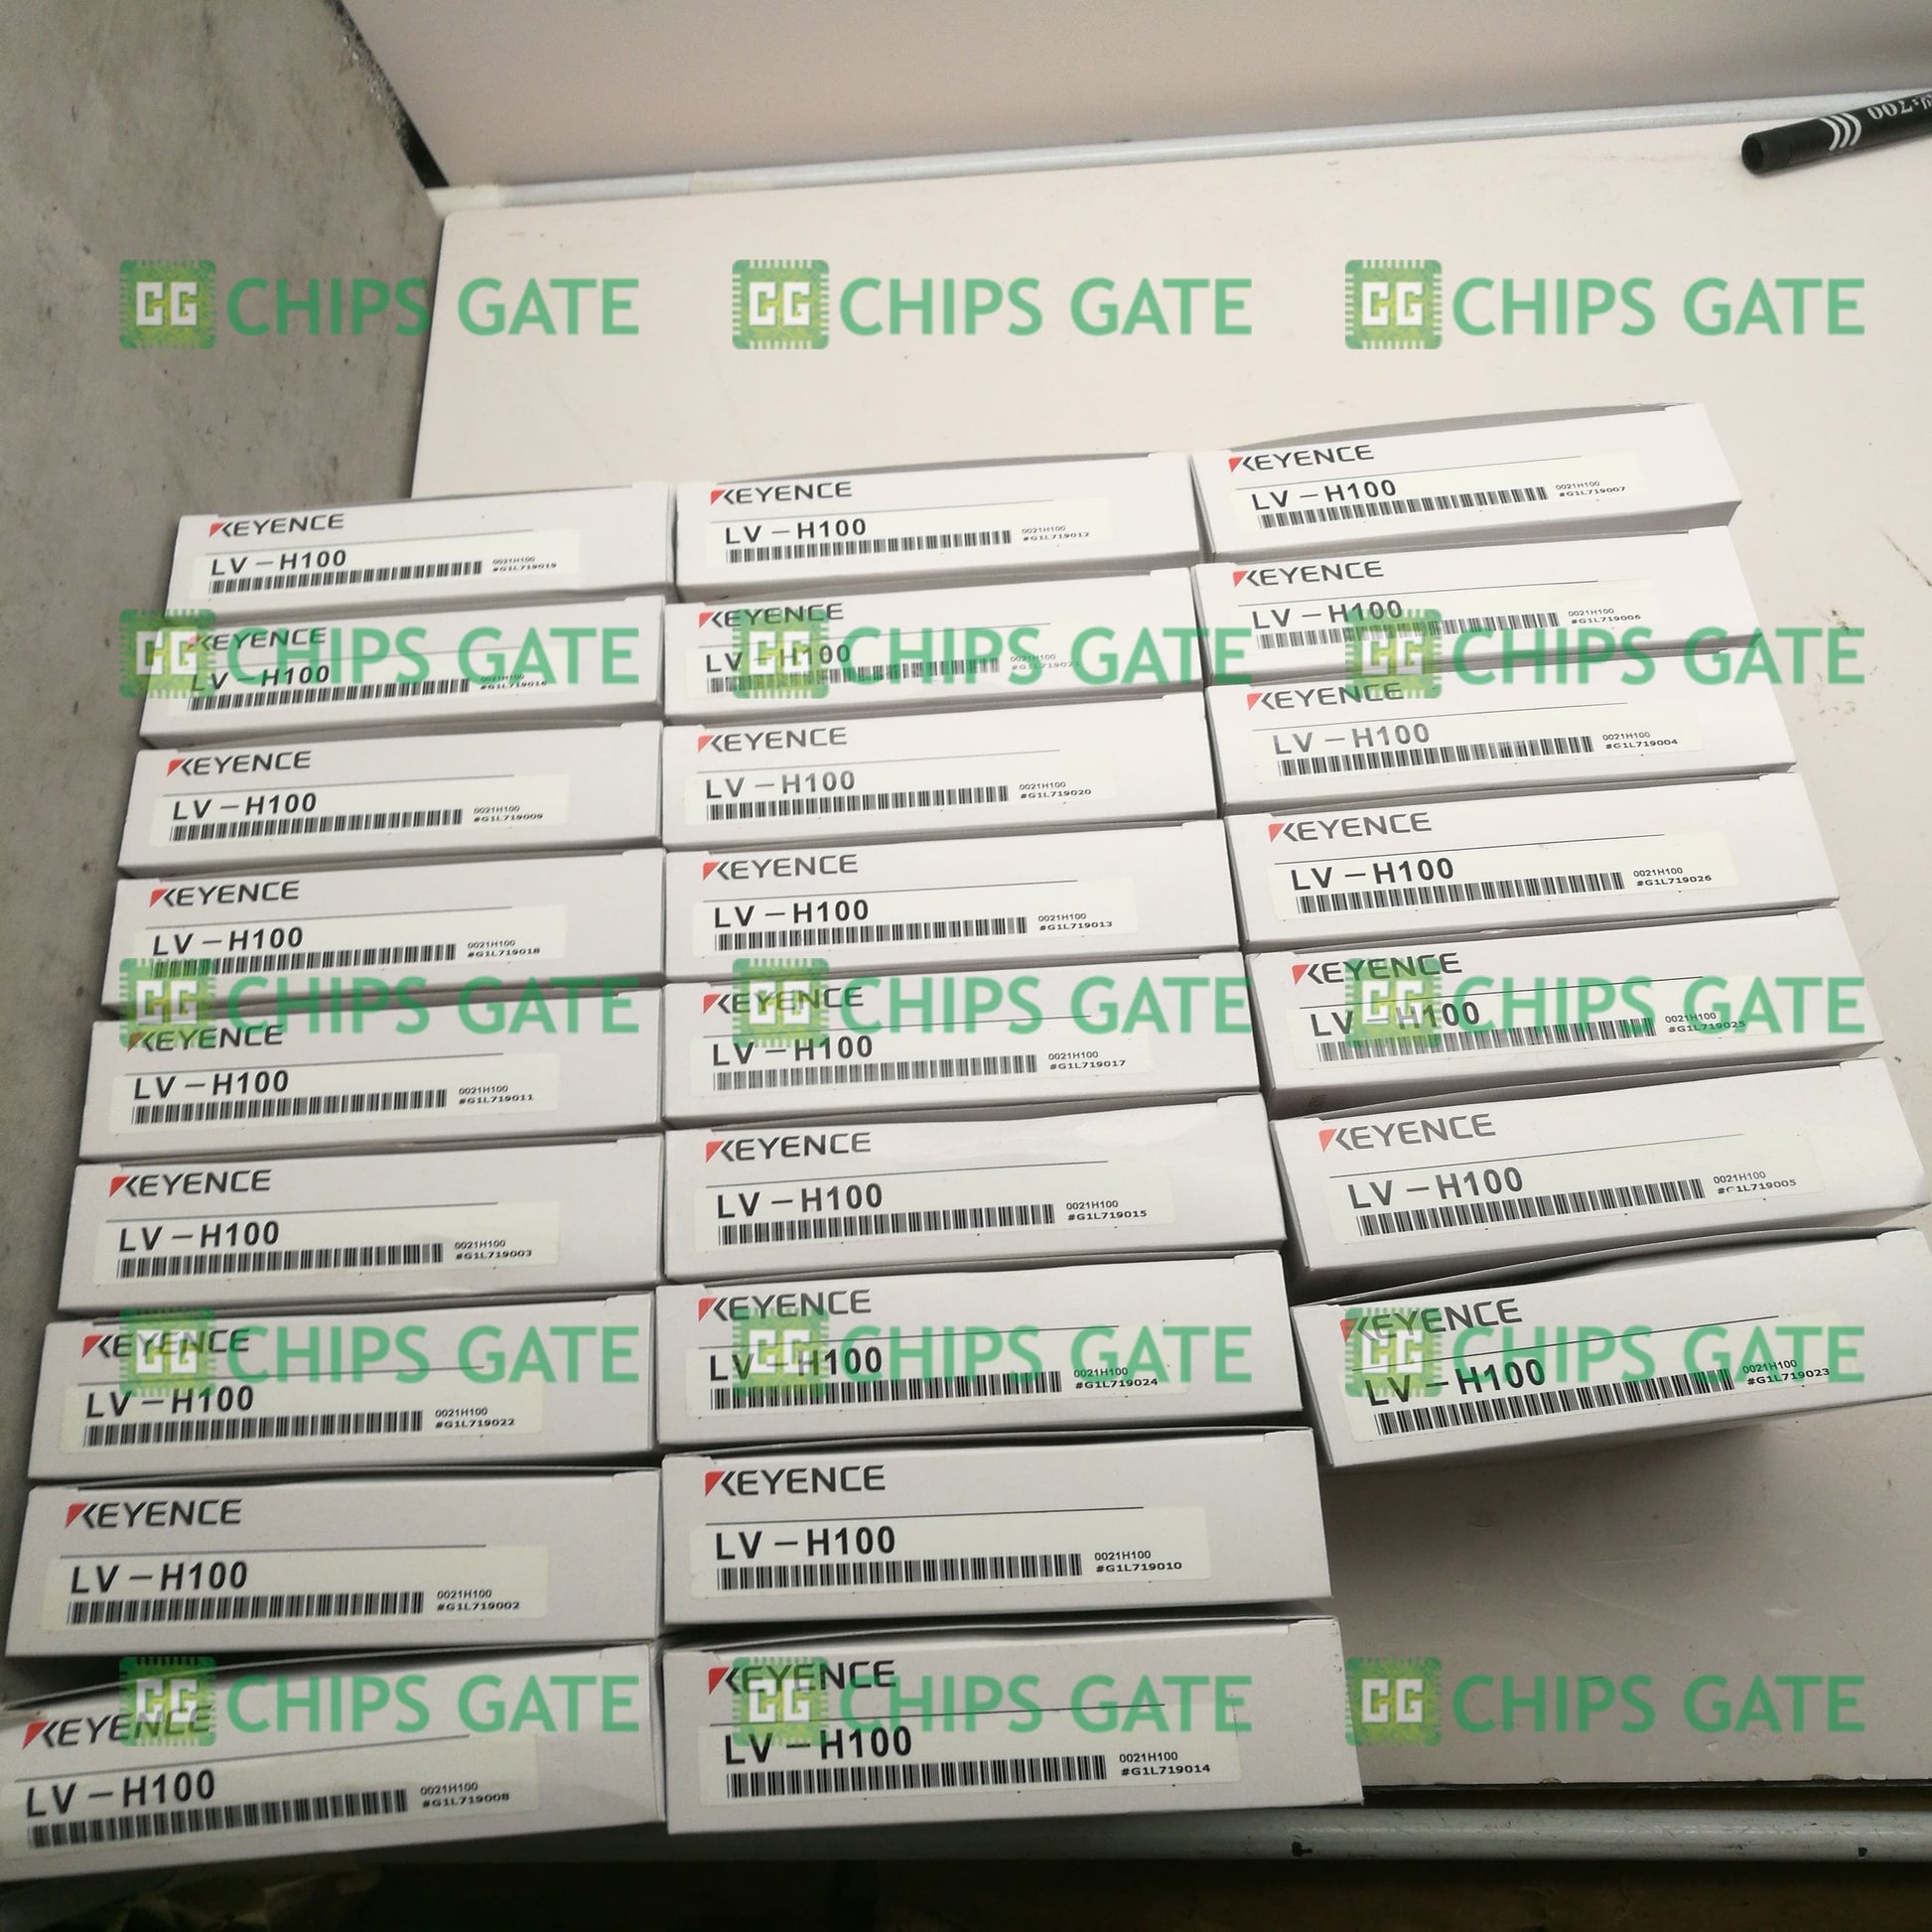 W:700
CG CHIPS GATE
CG CHIPS GATE
CG CHIPS GATE
KEYENCE
LV-H100
0021H100
#G1L719019
KEYENCE
LV-H100
0021H100
#G1L719012
KEYENCE
LV-H100
0021H100
#G1L719007
CG CHIPS GATE
CG CHIPS GATE
CG CHIPS GATE
KEYENCE
LV-H100
0021H100
#G1L719016
KEYENCE
LV-H100
0021H100
#G1L719021
KEYENCE
LV-H100
0021H100
#G1L719006
KEYENCE
LV-H100
0021H100
#G1L719009
KEYENCE
LV-H100
0021H100
#G1L719020
KEYENCE
LV-H100
0021H100
#G1L719004
KEYENCE
LV-H100
0021H100
#G1L719018
KEYENCE
LV-H100
0021H100
#G1L719013
KEYENCE
LV-H100
0021H100
#G1L719026
CG CHIPS GATE
CG CHIPS GATE
CG CHIPS GATE
KEYENCE
LV-H100
0021H100
#G1L719011
KEYENCE
LV-H100
0021H100
#G1L719017
KEYENCE
LV-H100
0021H100
#G1L719025
KEYENCE
LV-H100
0021H100
#G1L719003
KEYENCE
LV-H100
0021H100
#G1L719015
KEYENCE
LV-H100
0021H100
#G1L719005
CG CHIPS GATE
CG CHIPS GATE
CG CHIPS GATE
KEYENCE
LV-H100
0021H100
#G1L719022
KEYENCE
LV-H100
0021H100
#G1L719024
KEYENCE
LV-H100
0021H100
#G1L719023
KEYENCE
LV-H100
0021H100
#G1L719002
KEYENCE
LV-H100
0021H100
#G1L719010
CG CHIPS GATE
CG CHIPS GATE
CG CHIPS GATE
KEYENCE
LV-H100
0021H100
#G1L719008
KEYENCE
LV-H100
0021H100
#G1L719014